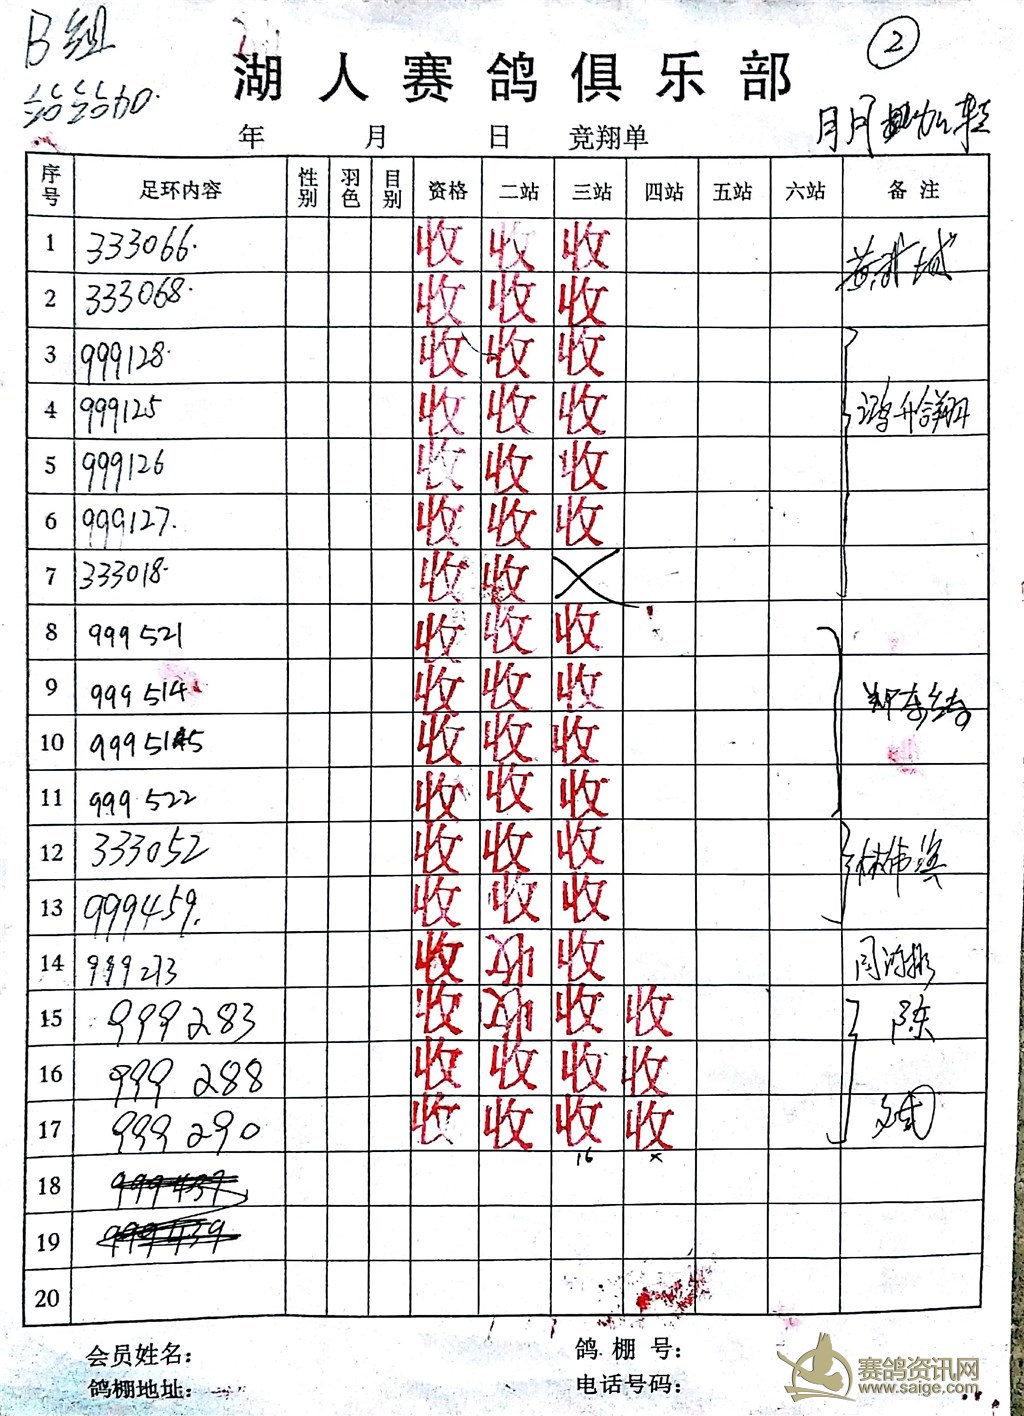 B组
②
湖人赛鸽俱乐部
年 月 日 竞翔单
序号 足环内容 性别 羽色 目别 资格 二站 三站 四站 五站 六站 备注
1 333066. 收 收 收
2 333068. 收 收 收
3 999128. 收 收 收
4 999125 收 收 收
5 999126 收 收 收
6 999127. 收 收 收
7 333018. 收 收 ×
8 999521 收 收 收
9 999514 收 收 收
10 收 收 收
11 999522 收 收 收
12 333052 收 收 收
13 999459. 收 收 收
14 999273 收 收
15 999283 收 收 收 陈
16 999288 收 收 收 收
17 999290 收 收 收 收
16 ×
18
19
20
会员姓名： 鸽棚号：
鸽棚地址： 电话号码：
赛鸽资讯网
www.saige.com